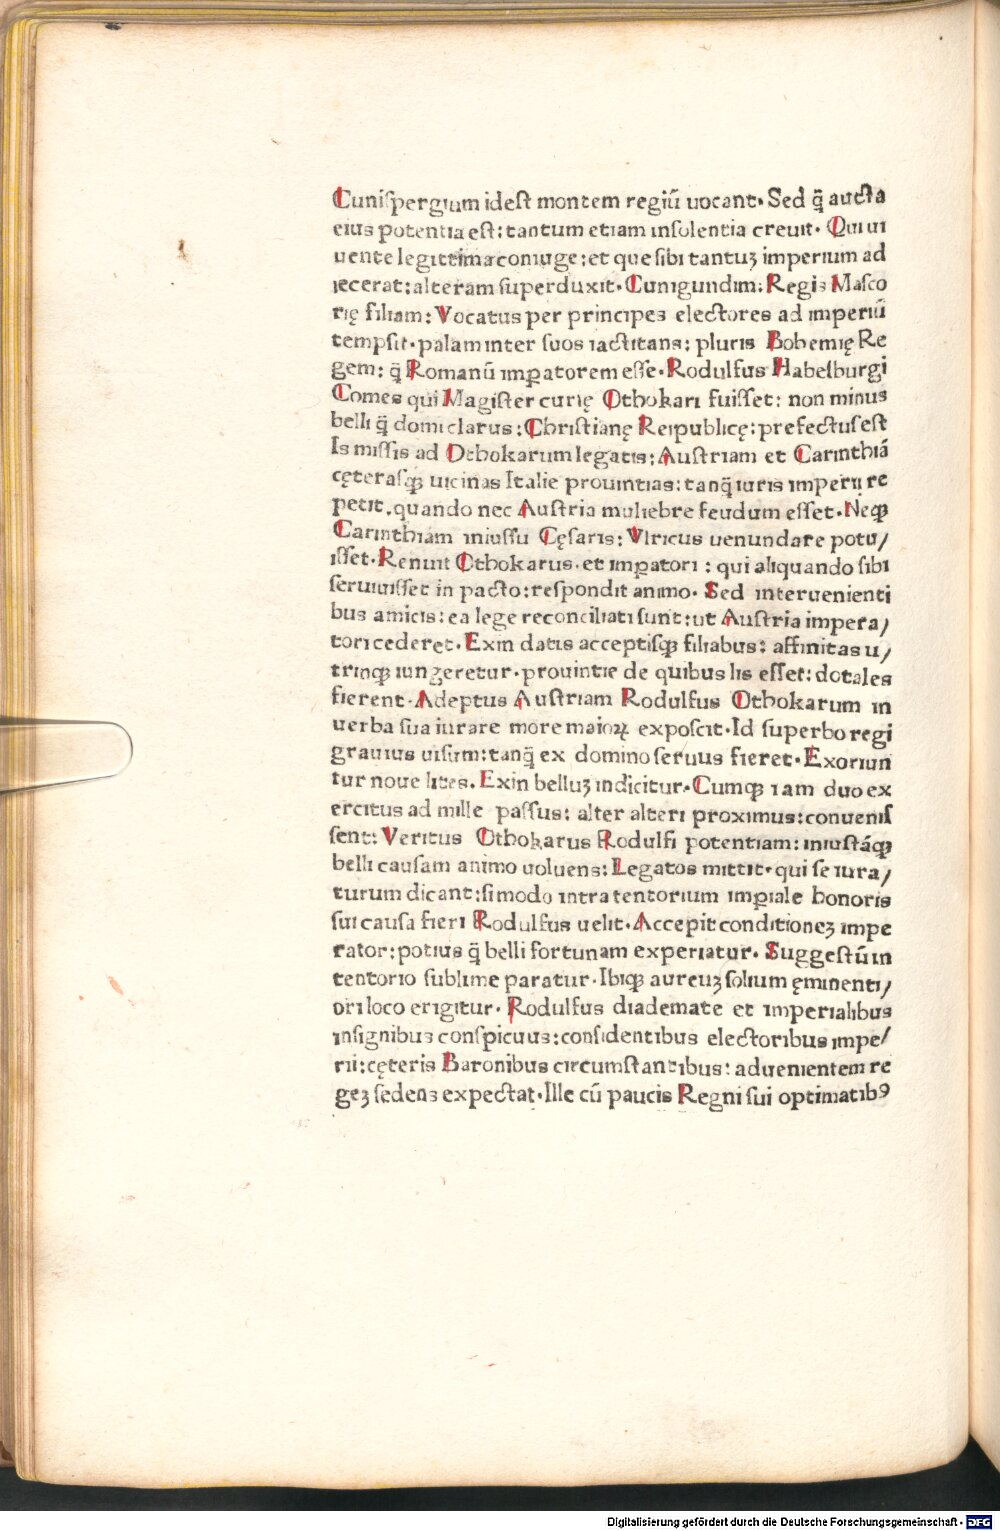 Cunispergium idest montem regiū uocant. Sed q̄ aucta
eius potentia est: tantum etiam insolentia creuit. Qui ui
uente legittima coniuge: et que sibi tantuȝ imperium ad
iecerat: alteram superduxit. Cunigundim: Regis Masco
rię filiam: Vocatus per principes electores ad imperiū
tempsit. palam inter suos iactitans: pluris Bohemię Re
gem: q̄ Romanū imꝑatorem esse. Rodulfus Habesburgi
Comes qui Magister curię Othokari fuisset: non minus
belli q̄ domi clarus: Christianę Reipublicę: prefectus est
Is missis ad Othokarum legatis: Austriam et Carinthiā
cęterasqꝫ uicinas Italie prouintias: tanq̄ iuris imperij re
petit. quando nec Austria muliebre feudum esset. Neqꝫ
Carinthiam iniussu Cęsaris: Vlricus uenundare potu/
isset. Renuit Othokarus. et imꝑatori: qui aliquando sibi
seruiuisset in pacto: respondit animo. Sed interuenienti
bus amicis: ea lege reconciliati sunt: ut Austria impera/
tori cederet. Exin datis acceptisqꝫ filiabus: affinitas u/
trinqꝫ iungeretur. prouintie de quibus lis esset: dotales
fierent. Adeptus Austriam Rodulfus Othokarum in
uerba sua iurare more maioꝝ exposcit. Id superbo regi
grauius uisum: tanq̄ ex domino seruus fieret. Exoriun
tur noue lites. Exin belluȝ indicitur. Cumqꝫ iam duo ex
ercitus ad mille passus: alter alteri proximus: conuenis
sent: Veritus Othokarus Rodulfi potentiam: iniustāqꝫ
belli causam animo uoluens: Legatos mittit. qui se iura/
turum dicant: si modo intra tentorium imꝑiale honoris
sui causa fieri Rodulfus uelit. Accepit conditioneȝ impe
rator: potius q̄ belli fortunam experiatur. Suggestū in
tentorio sublime paratur. Ibiqꝫ aureuȝ solium ęminenti/
ori loco erigitur. Rodulfus diademate et imperialibus
insignibus conspicuus: considentibus electoribus impe/
rii: cęteris Baronibus circumstantibus: aduenientem re
geȝ sedens expectat. Ille cū paucis Regni sui optimatibꝰ
Digitalisierung gefördert durch die Deutsche Forschungsgemeinschaft - DFG